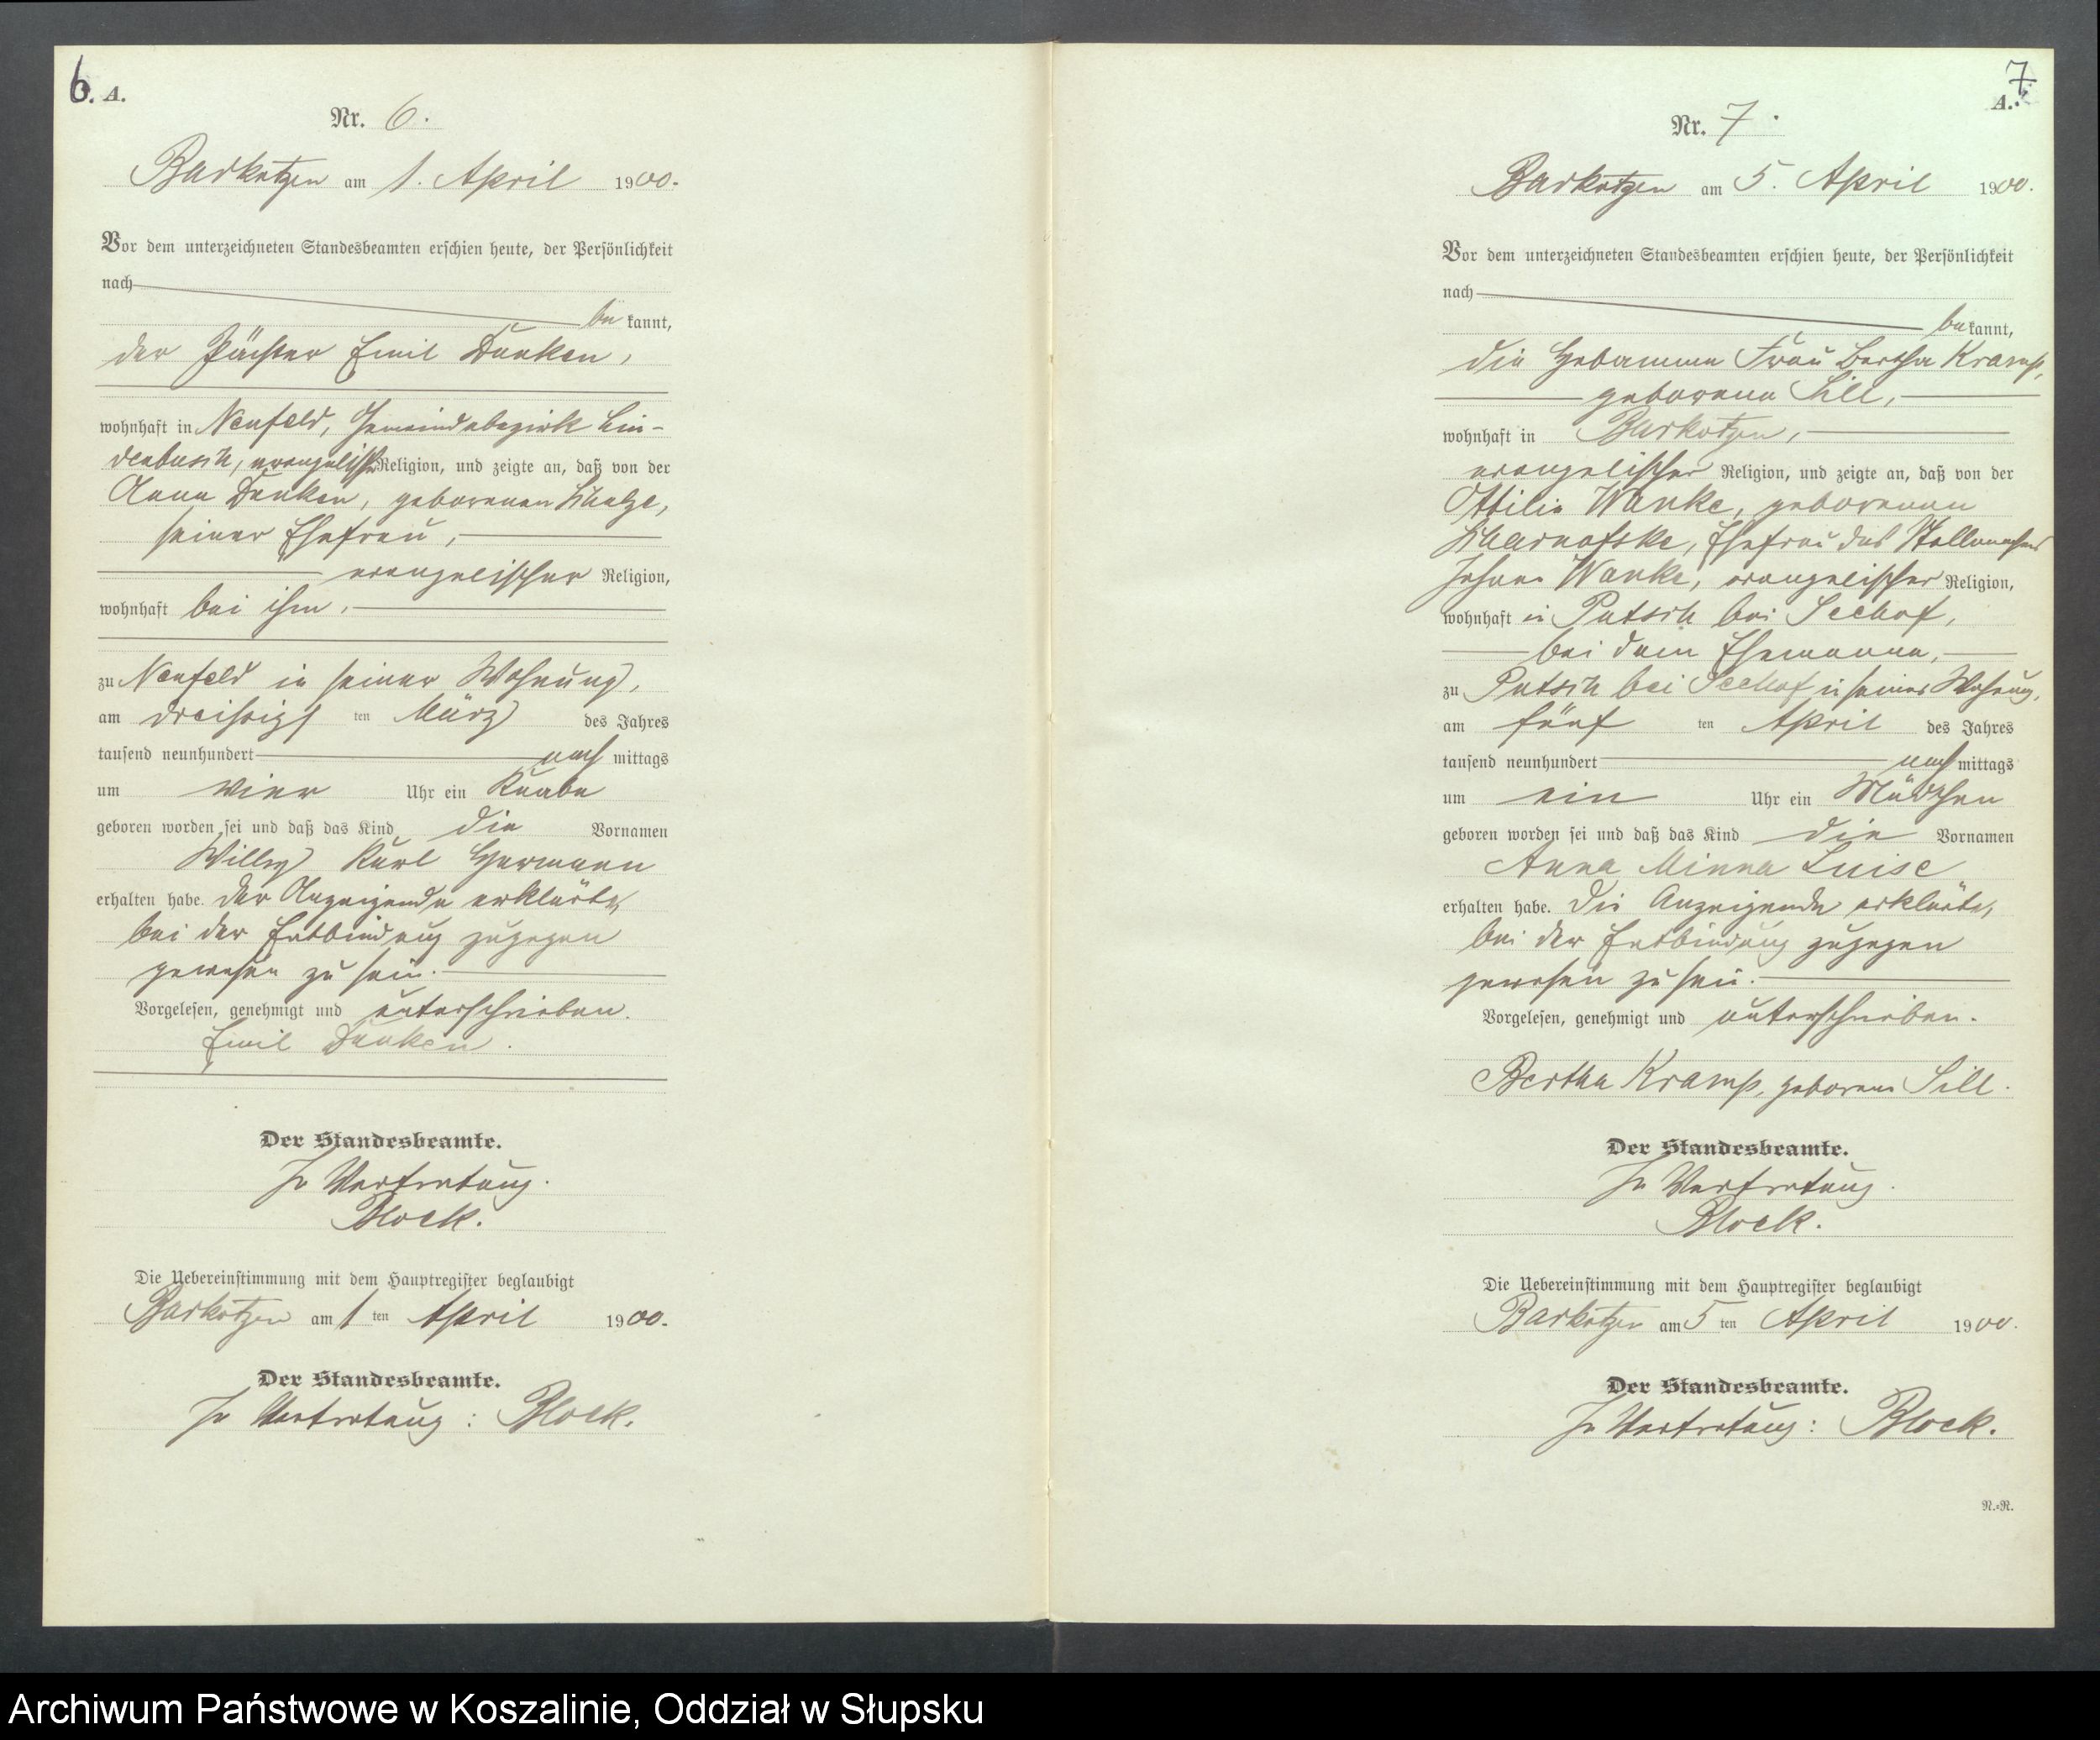 6. A.
Nr. 6.
Barkotzen am 1. April 1900.
Vor dem unterzeichneten Standesbeamten erschien heute, der Persönlichkeit
nach
be kannt,
der Pächter Emil Dunken,
wohnhaft in Neufeld, Gemeindebezirk Lin-
denbusch, evangelischer Religion, und zeigte an, daß von der
Anna Dunken, geborenen
seiner Ehefrau,
evangelischer Religion,
wohnhaft bei ihm,
zu Neufeld in seiner Wohnung,
am dreißigst ten März des Jahres
tausend neunhundert nach mittags
um vier Uhr ein Knabe
geboren worden sei und daß das Kind die Vornamen
Willy Karl Hermann
erhalten habe. Der Anzeigende erklärte,
bei der Entbindung zugegen
gewesen zu sein.
Vorgelesen, genehmigt und unterschrieben.
Emil Dunken.
Der Standesbeamte.
In Vertretung.
Block.
Die Uebereinstimmung mit dem Hauptregister beglaubigt
Barkotzen am 1 ten April 1900.
Der Standesbeamte.
In Vertretung: Block.
7
A.
Nr. 7.
Barkotzen am 5. April 1900.
Vor dem unterzeichneten Standesbeamten erschien heute, der Persönlichkeit
nach
be kannt,
die Hebamme Frau Bertha Kramp,
geborene Sill,
wohnhaft in Barkotzen,
evangelischer Religion, und zeigte an, daß von der
Ottilie Wanke, geborenen
Scharnofske, Ehefrau des Stellmachers
Johann Wanke, evangelischer Religion,
wohnhaft in Putsch bei Seehof,
bei dem Ehemanne,
zu Putsch bei Seehof in seiner Wohnung,
am fünf ten April des Jahres
tausend neunhundert nach mittags
um ein Uhr ein Mädchen
geboren worden sei und daß das Kind die Vornamen
Anna Minna Luise
erhalten habe. Die Anzeigende erklärte,
bei der Entbindung zugegen
gewesen zu sein.
Vorgelesen, genehmigt und unterschrieben.
Bertha Kramp, geborene Sill.
Der Standesbeamte.
In Vertretung.
Block.
Die Uebereinstimmung mit dem Hauptregister beglaubigt
Barkotzen am 5 ten April 1900.
Der Standesbeamte.
In Vertretung: Block.
N.=N.
Archiwum Państwowe w Koszalinie, Oddział w Słupsku